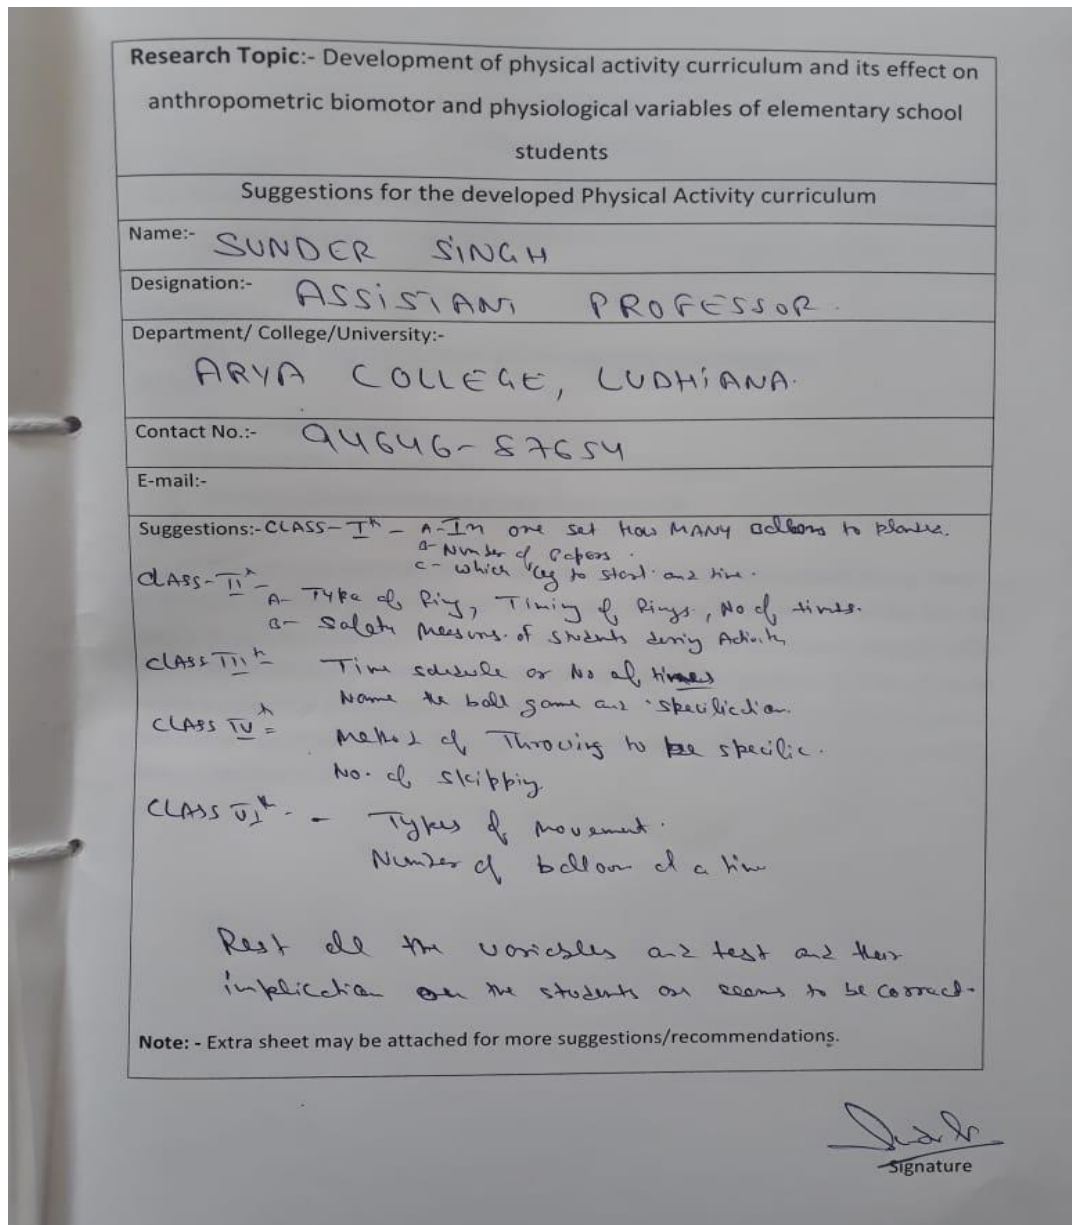 Research Topic:- Development of physical activity curriculum and its effect on
anthropometric biomotor and physiological variables of elementary school
students
Suggestions for the developed Physical Activity curriculum
Name:- SUNDER SINGH
Designation:- ASSISTANT PROFESSOR.
Department/ College/University:-
ARYA COLLEGE, LUDHIANA.
Contact No.:- 94646-87654
E-mail:-
Suggestions:- CLASS-Ist - A- In one set How MANY Balloons to
B- Number of Papers.
C- which leg to start and time.
CLASS-II -
A- Type of Ring, Timing of Rings, No of times.
B- Safety Measures of students during Activity
CLASS III - Time schedule or No of times
Name the ball game and specification.
CLASS IV = Method of Throwing to be specific.
No. of skipping
CLASS VI - - Types of movement.
Number of balloon at a time
Rest all the variables and test and their
implication over the students are seems to be correct.
Note: - Extra sheet may be attached for more suggestions/recommendations.
Signature